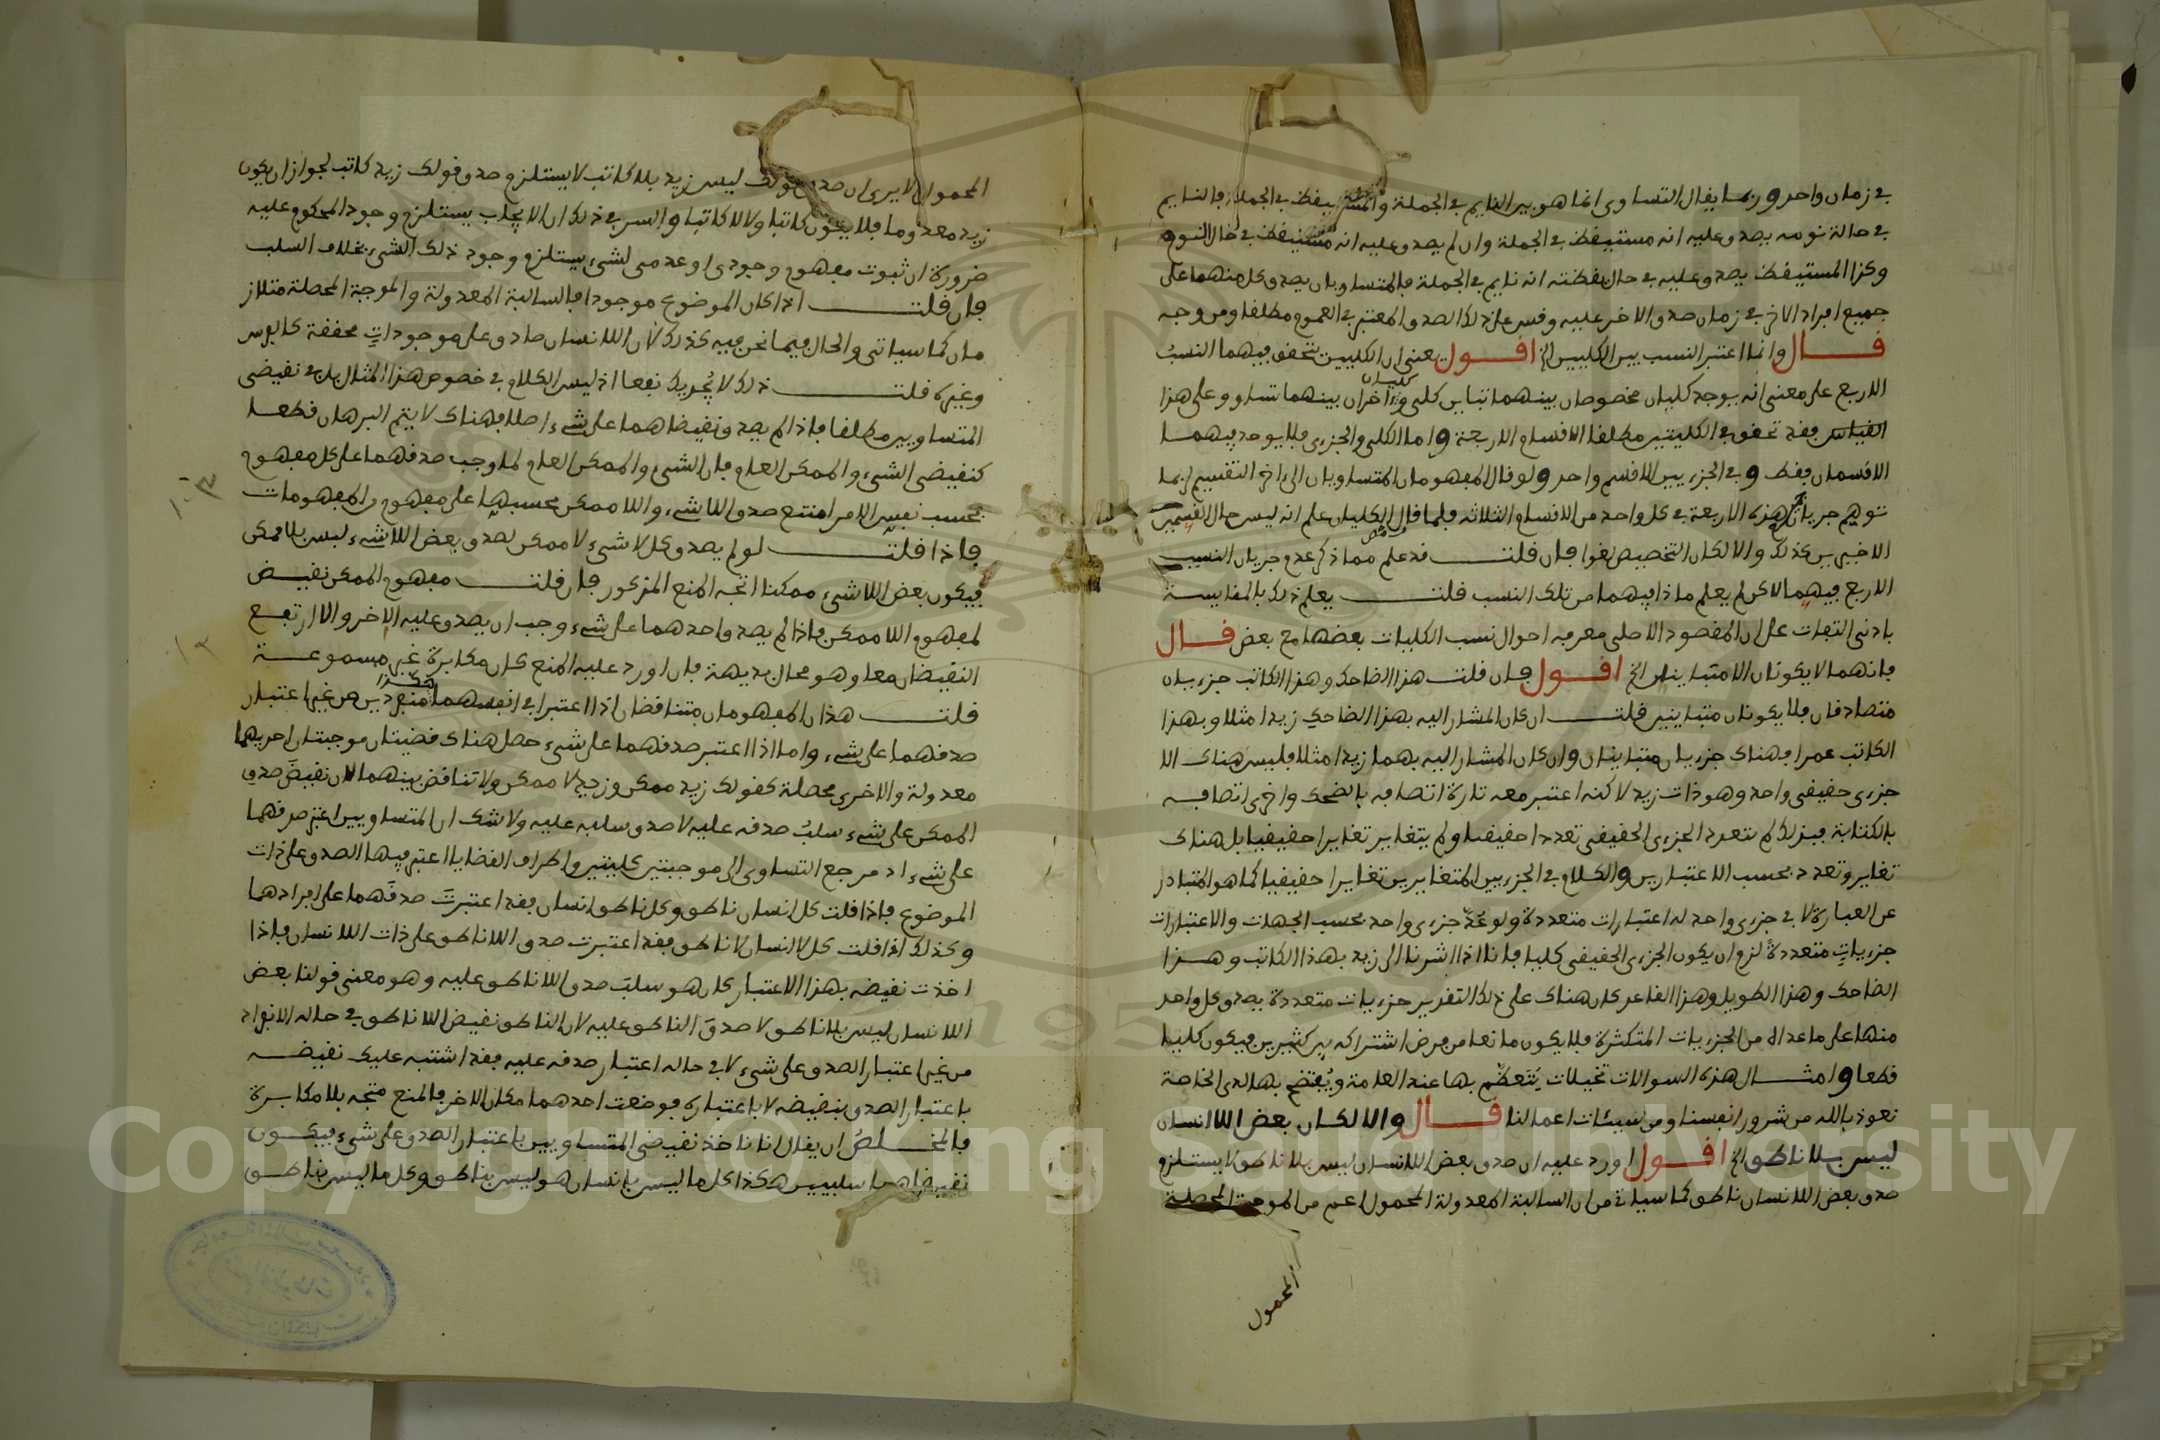 في زمان واحد وربما يقال التساوي انما هو بين النايم في الجملة والمستيقظ في الجملة فالنايم
في حالة نومه يصدق عليه انه مستيقظ في الجملة وان لم يصدق عليه انه مستيقظ في حال النوم
وكذا المستيقظ يصدق عليه في حال يقظته انه نايم في الجملة فالمتساويان يصدق كل منهما على
جميع افراد الاخر في زمان صدق الاخر عليه وقس على ذلك الصدق المعتبر في العموم مطلقا ومن وجه
قال وانما اعتبر النسب بين الكليين الخ اقول يعني ان الكليين تتحقق فيهما النسب
الاربع على معنى انه يوجد كليان مخصوصان بينهما تباين كلي وكليان اخران بينهما تساو وعلى هذا
القياس فقد تحقق في الكليتين مطلقا الاقسام الاربعة واما الكلي والجزءي فلا يوجد فيهما
الا قسمان فقط وفي الجزءيين الا قسم واحد ولو قال المفهومان المتساويان الى اخر التقسيم لربما
توهم جريان هذه الاربعة في كل واحد من الاقسام الثلاثه فلما قال الكليان علم انه ليس حال القسمين
الاخيرين كذلك والا لكان التخصيص لغوا فان قلت قد علم مما ذكر عدم جريان النسب
الاربع فيهما لاكن لم يعلم ماذا فيهما من تلك النسب قلت يعلم ذلك بالمقايسة
بادنى التفات على ان المقصود الاصلي معرفة احوال نسب الكليات بعضها مع بعض قال
فانهما لا يكونان الا متباينان الخ اقول فان قلت هذا الضاحك وهذا الكاتب جزءيان
متصادقان فلا يكونان متباينين قلت ان كان المشار اليه بهذا الضاحك زيدا مثلا وبهذا
الكاتب عمرا فهناك جزءيان متباينان وان كان المشار اليه بهما زيدا مثلا فليس هناك الا
جزءي حقيقي واحد وهو ذات زيد لاكنه اعتبر معه تارة اتصافه بالضحك واخرى اتصافه
بالكتابة فبذلك لم يتعدد الجزءي الحقيقي تعددا حقيقيا ولم يتغاير تغايرا حقيقيا بل هناك
تغاير وتعدد بحسب الاعتبارين والكلام في الجزءيين المتغايرين تغايرا حقيقيا كما هو المتبادر
عن العبارة لا في جزءي واحد له اعتبارات متعددة ولو عد جزءي واحد بحسب الجهات والاعتبارات
جزءيات متعددة لزم ان يكون الجزءي الحقيقي كليا فانا اذا اشرنا الى زيد بهذا الكاتب وهذا
الضاحك وهذا الطويل وهذا القاعد كان هناك على ذلك التقدير جزءيات متعددة يصدق كل واحد
منها على ما عداه من الجزءيات المتكثرة فلا يكون مانعا من فرض اشتراكه بين كثيرين فيكون كليا
قطعا وامثال هذه السوالات تخيلات يتعظم بها عند العامة ويفتضح بها لدى الخاصة
نعوذ بالله من شرور انفسنا ومن سيئات اعمالنا قال والا لكان بعض اللا انسان
ليس بلا ناطق الخ اقول اورد عليه ان صدق بعض اللا انسان ليس بلا ناطق لا يستلزم
صدق بعض اللا انسان ناطق كما سياتي من ان السالبة المعدولة المحمول اعم من الموجبة المحصلة
المحمول
المحمول الا يرى ان صدق قولك ليس زيد بلا كاتب لا يستلزم صدق قولك زيد كاتب لجواز ان يكون
زيد معدوما فلا يكون كاتبا ولا لا كاتبا والسر في ذلك ان الايجاب يستلزم وجود المحكوم عليه
ضرورة ان ثبوت مفهوم وجودي او عدمي لشيء يستلزم وجود ذلك الشيء بخلاف السلب
فان قلت اذا كان الموضوع موجودا فالسالبة المعدولة والموجبة المحصلة متلاز
مان كما سياتي والحال فيما نحن فيه كذلك لان اللا انسان صادق على موجودات محققة كالفرس
وغيره قلت ذلك لا يجديك نفعا اذ ليس الكلام في خصوص هذا المثال بل في نقيضي
المتساويين مطلقا فاذا لم يصدق نقيضاهما على شيء اصلا فهناك لا يتم البرهان قطعا
كنقيضي الشيء والممكن العام فان الشيء والممكن العام لما وجب صدقهما على كل مفهوم
بحسب نفس الامر امتنع صدق اللاشيء واللاممكن بحسبها على مفهوم من المفهومات
فاذا قلت لو لم يصدق كل لاشيء لاممكن لصدق بعض اللاشيء ليس بلاممكن
فيكون بعض اللاشيء ممكنا اتجه المنع المذكور فان قلت مفهوم الممكن نقيض
لمفهوم اللاممكن فاذا لم يصدق احدهما على شيء وجب ان يصدق عليه الاخر والا ارتفع
النقيضان معا وهو محال بديهة فان اورد عليه المنع كان مكابرة غير مسموعة
قلت هذان المفهومان متناقضان اذا اعتبرا في انفسهما هكذا منفردين من غير اعتبار
صدقهما على شيء واما اذا اعتبر صدقهما على شيء حصل هناك قضيتان موجبتان احديهما
معدولة والاخرى محصلة كقولك زيد ممكن وزيد لاممكن ولا تناقض بينهما لان نقيض صدق
الممكن على شيء سلب صدقه عليه لا صدق سلبه عليه ولا شك ان المتساويين اعتبر صدقهما
على شيء اذ مرجع التساوي الى موجبتين كليتين واطراف القضايا اعتبر فيها الصدق على ذات
الموضوع فاذا قلت كل انسان ناطق وكل ناطق انسان فقد اعتبرت صدقهما على افرادهما
وكذلك اذا قلت كل لا انسان لا ناطق فقد اعتبرت صدق اللا ناطق على ذات اللا انسان فاذا
اخذت نقيضه بهذا الاعتبار كان هو سلب صدق اللا ناطق عليه وهو معنى قولنا بعض
اللا انسان ليس بلا ناطق لا صدق الناطق عليه لان الناطق نقيض اللا ناطق في حالة الانفراد
من غير اعتبار الصدق على شيء لا في حالة اعتبار صدقه عليه فقد اشتبه عليك نقيضه
باعتبار الصدق بنقيضه لا باعتباره فوضعت احدهما مكان الاخر فالمنع متجه بلا مكابرة
فالمخلص ان يقال انا ناخذ نقيضي المتساويين باعتبار الصدق على شيء فيكون
نقيضاهما سلبيين هكذا كل ما ليس بانسان هو ليس بناطق وكل ما ليس بناطق
Copyright © King Saud University